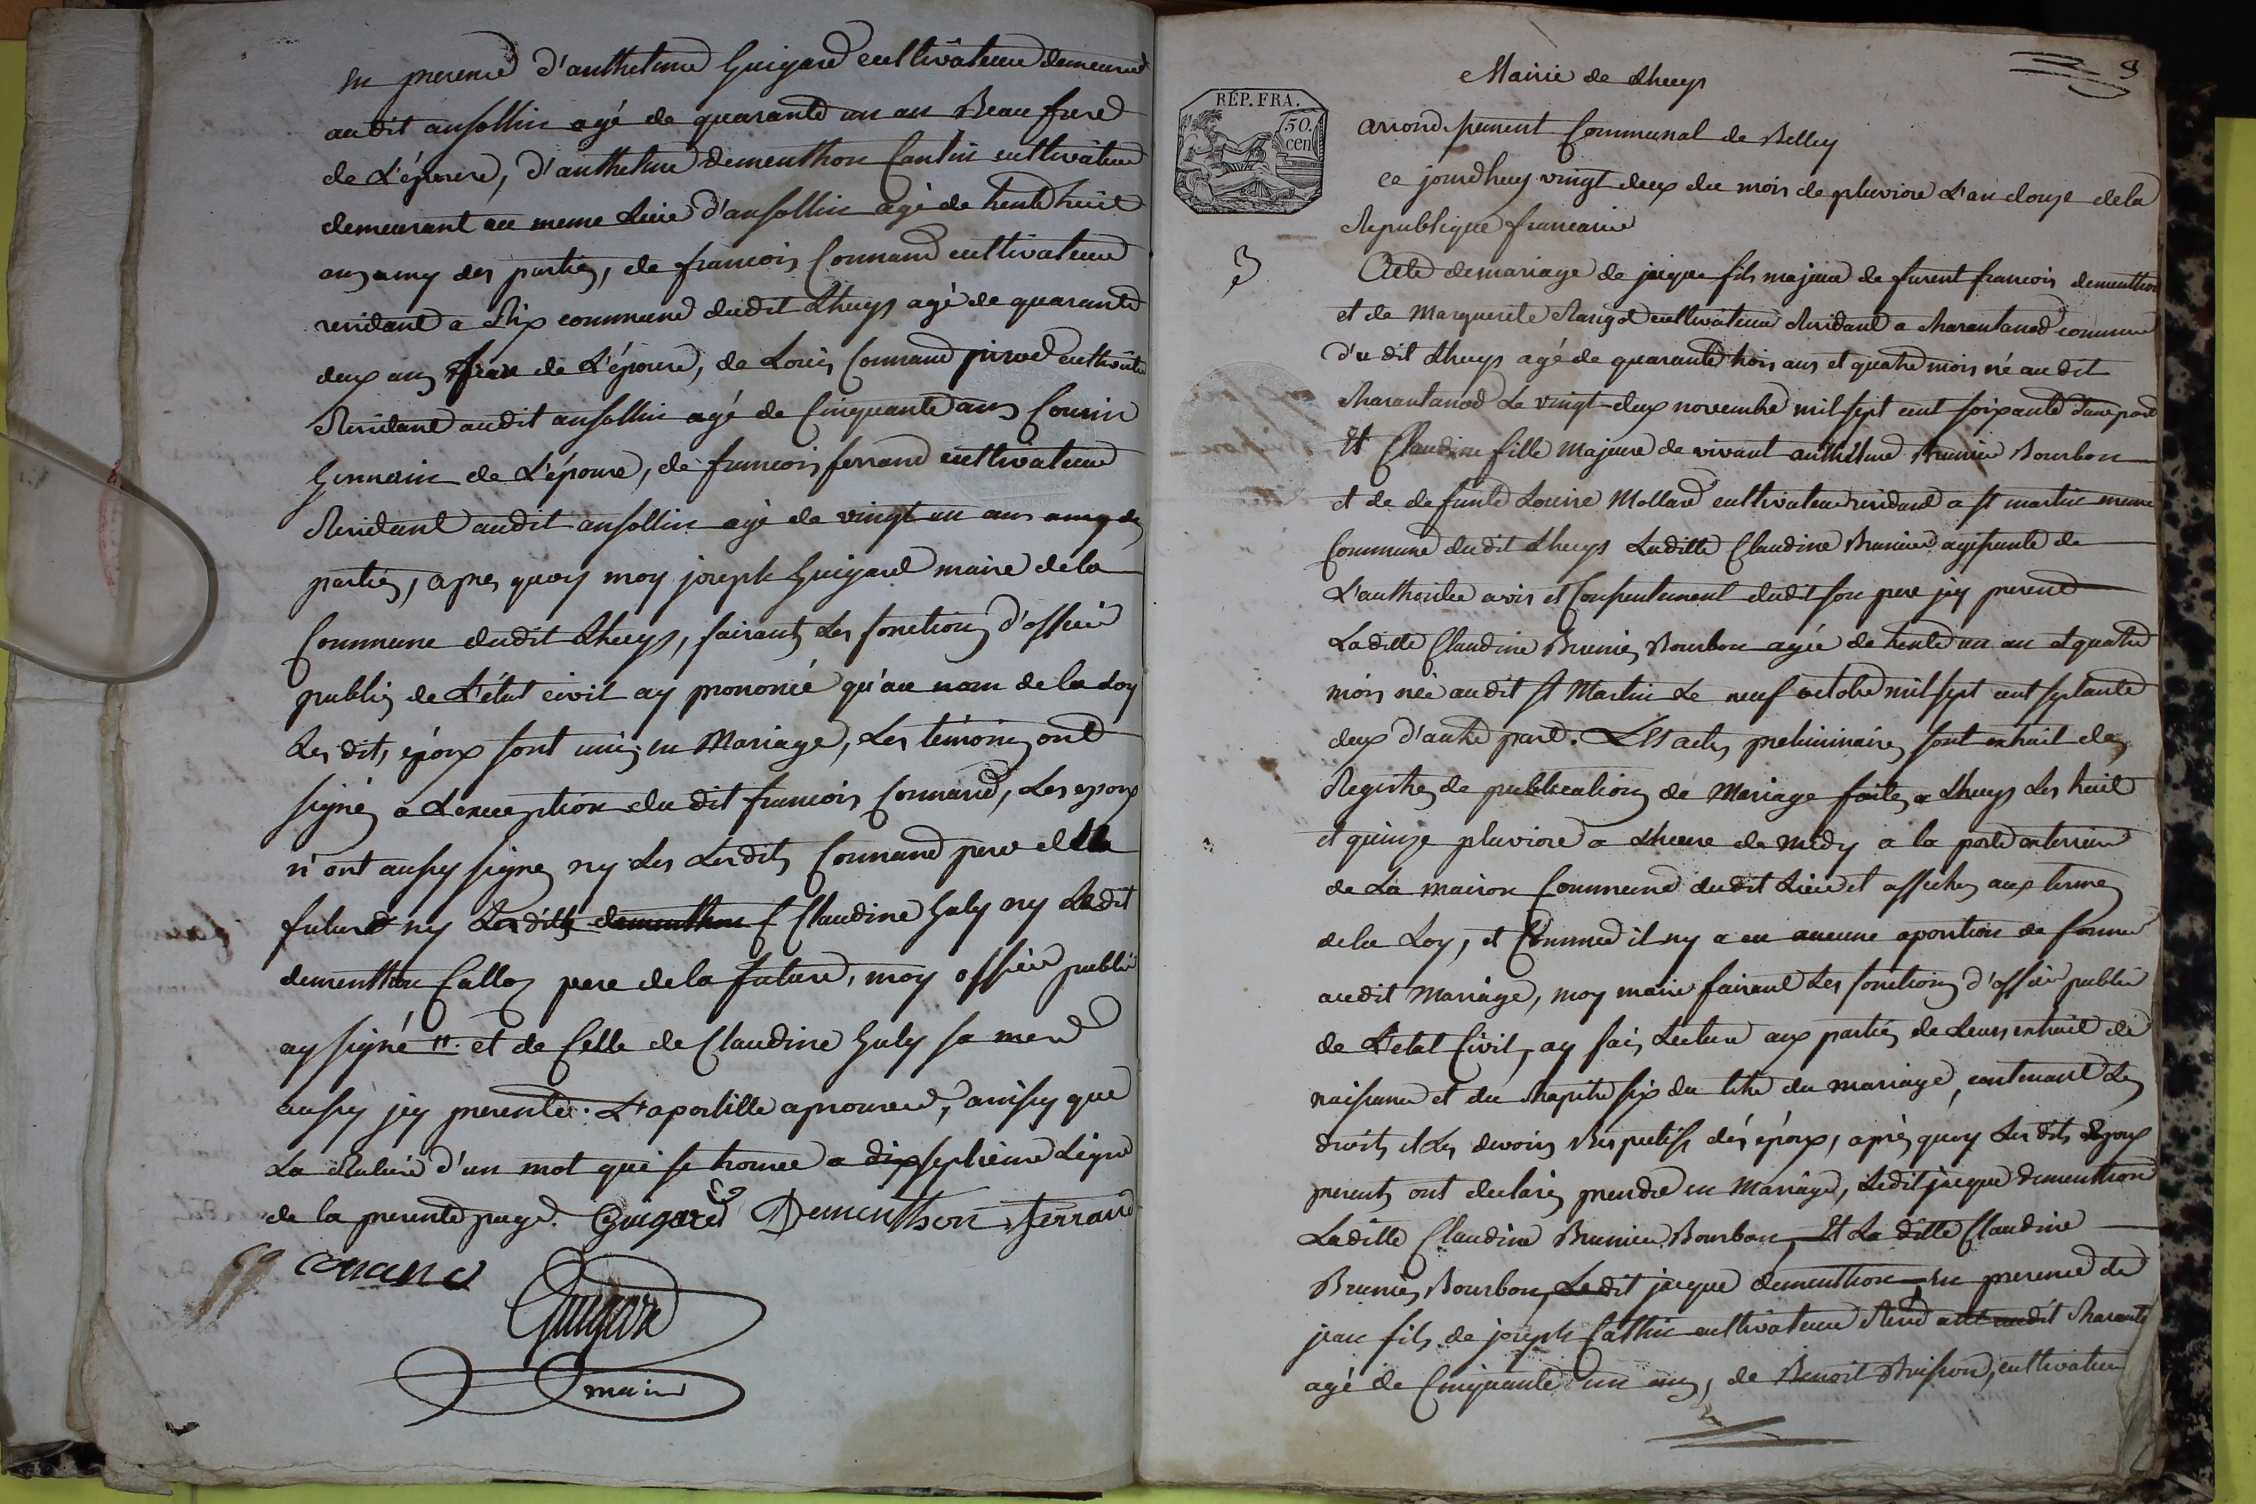 en presence d'anthelme Guigard cultivateur demeurant
audit ansollin agé de quarante un an Beau frere
de L'épouse, d'anthelme dementhon Cantin cultivateur
demeurant au meme Lieu d'ansollin agé de trente huit
ans amy des parties, de francois Connand cultivateur
residant a Rix commune dudit Lhuys agé de quarante
deux ans de L'épouse, de Louis Connand cultivateur
Residant audit ansollin agé de Cinquante ans Cousin
Germain de L'épouse, de francois ferrand cultivateur
Residant audit ansollin agé de vingt un ans amy des
parties, apres quoy moy joseph Guigard maire de la
Commune dudit Lhuys, faisant Les fonctions d'officier
public de L'état civil ay prononcé qu'au nom de la Loy
Les dits époux sont unis en Mariage, Les témoins ont
signés a L'exception du dit francois Connand, Les epoux
n'ont aussy signés ny Les Lesdits Connand pere et la
future ny Lesditts dementhon Claudine Guly ny Ledit
dementhon Calloz pere de la future, moy officier public
ay signé ". et de Celle de Claudine Guly sa mere
aussy jcy presente. L'apostille aprouvée, ainsy que
La Rature d'un mot qui se trouve a dixseptieme Ligne
de la presente page. Guigard Dementhon ferrand
Conand
Guigard
maire
3
Mairie de Lhuys
RÉP. FRA.
50.
cen
arrondissement Communal de Belley
ce jourdhuy vingt deux du mois de pluviose L'an douze de la
Republique francaise
3
Acte de mariage de jacque fils majeur de furent francois dementhon
et de Marguerite cultivateur Residant a Charantanod commune
du dit Lhuys agé de quarante trois ans et quatre mois né audit
Charantanod Le vingt deux novembre mil sept cent soixante d'une part
Et Claudine fille Majeure de vivant anthelme Brunier Bourbon
et de defunte Louise Mollard cultivateur residant a St martin meme
Commune dudit Lhuys Laditte Claudine Brunier agissante de
L'authorité avis et Consentement dudit son pere jcy present
Laditte Claudine Brunier Bourbon agée de trente un an et quatre
mois née audit St Martin Le neuf octobre mil sept cent septante
deux d'autre part. Les actes preliminaires sont extrait des
Registres de publications de Mariage faites a Lhuys Les huit
et quinze pluviose a Lheure de midy a la porte exterieure
de La maison Commune dudit Lieu et affichés aux termes
de la Loy, et Comme il ny a eu aucune oposition de formé
audit Mariage, moy maire faisant Les fonctions d'officier public
de L'etat Civil, ay fais Lecture aux parties de Leurs extrait de
naissance et du chapitre six du titre du mariage, contenant Les
droits et Les devoirs Respectifs des époux, après quoy Les dits Epoux
presents ont declarés prendre en Mariage, Ledit jacque dementhon
Laditte Claudine Brunier Bourbon, Et La ditte Claudine
Brunier Bourbon, Ledit jacque dementhon en presence de
jean fils de joseph Cathin cultivateur audit
agé de Cinquante un ans, de Benoit Buisson, cultivateur